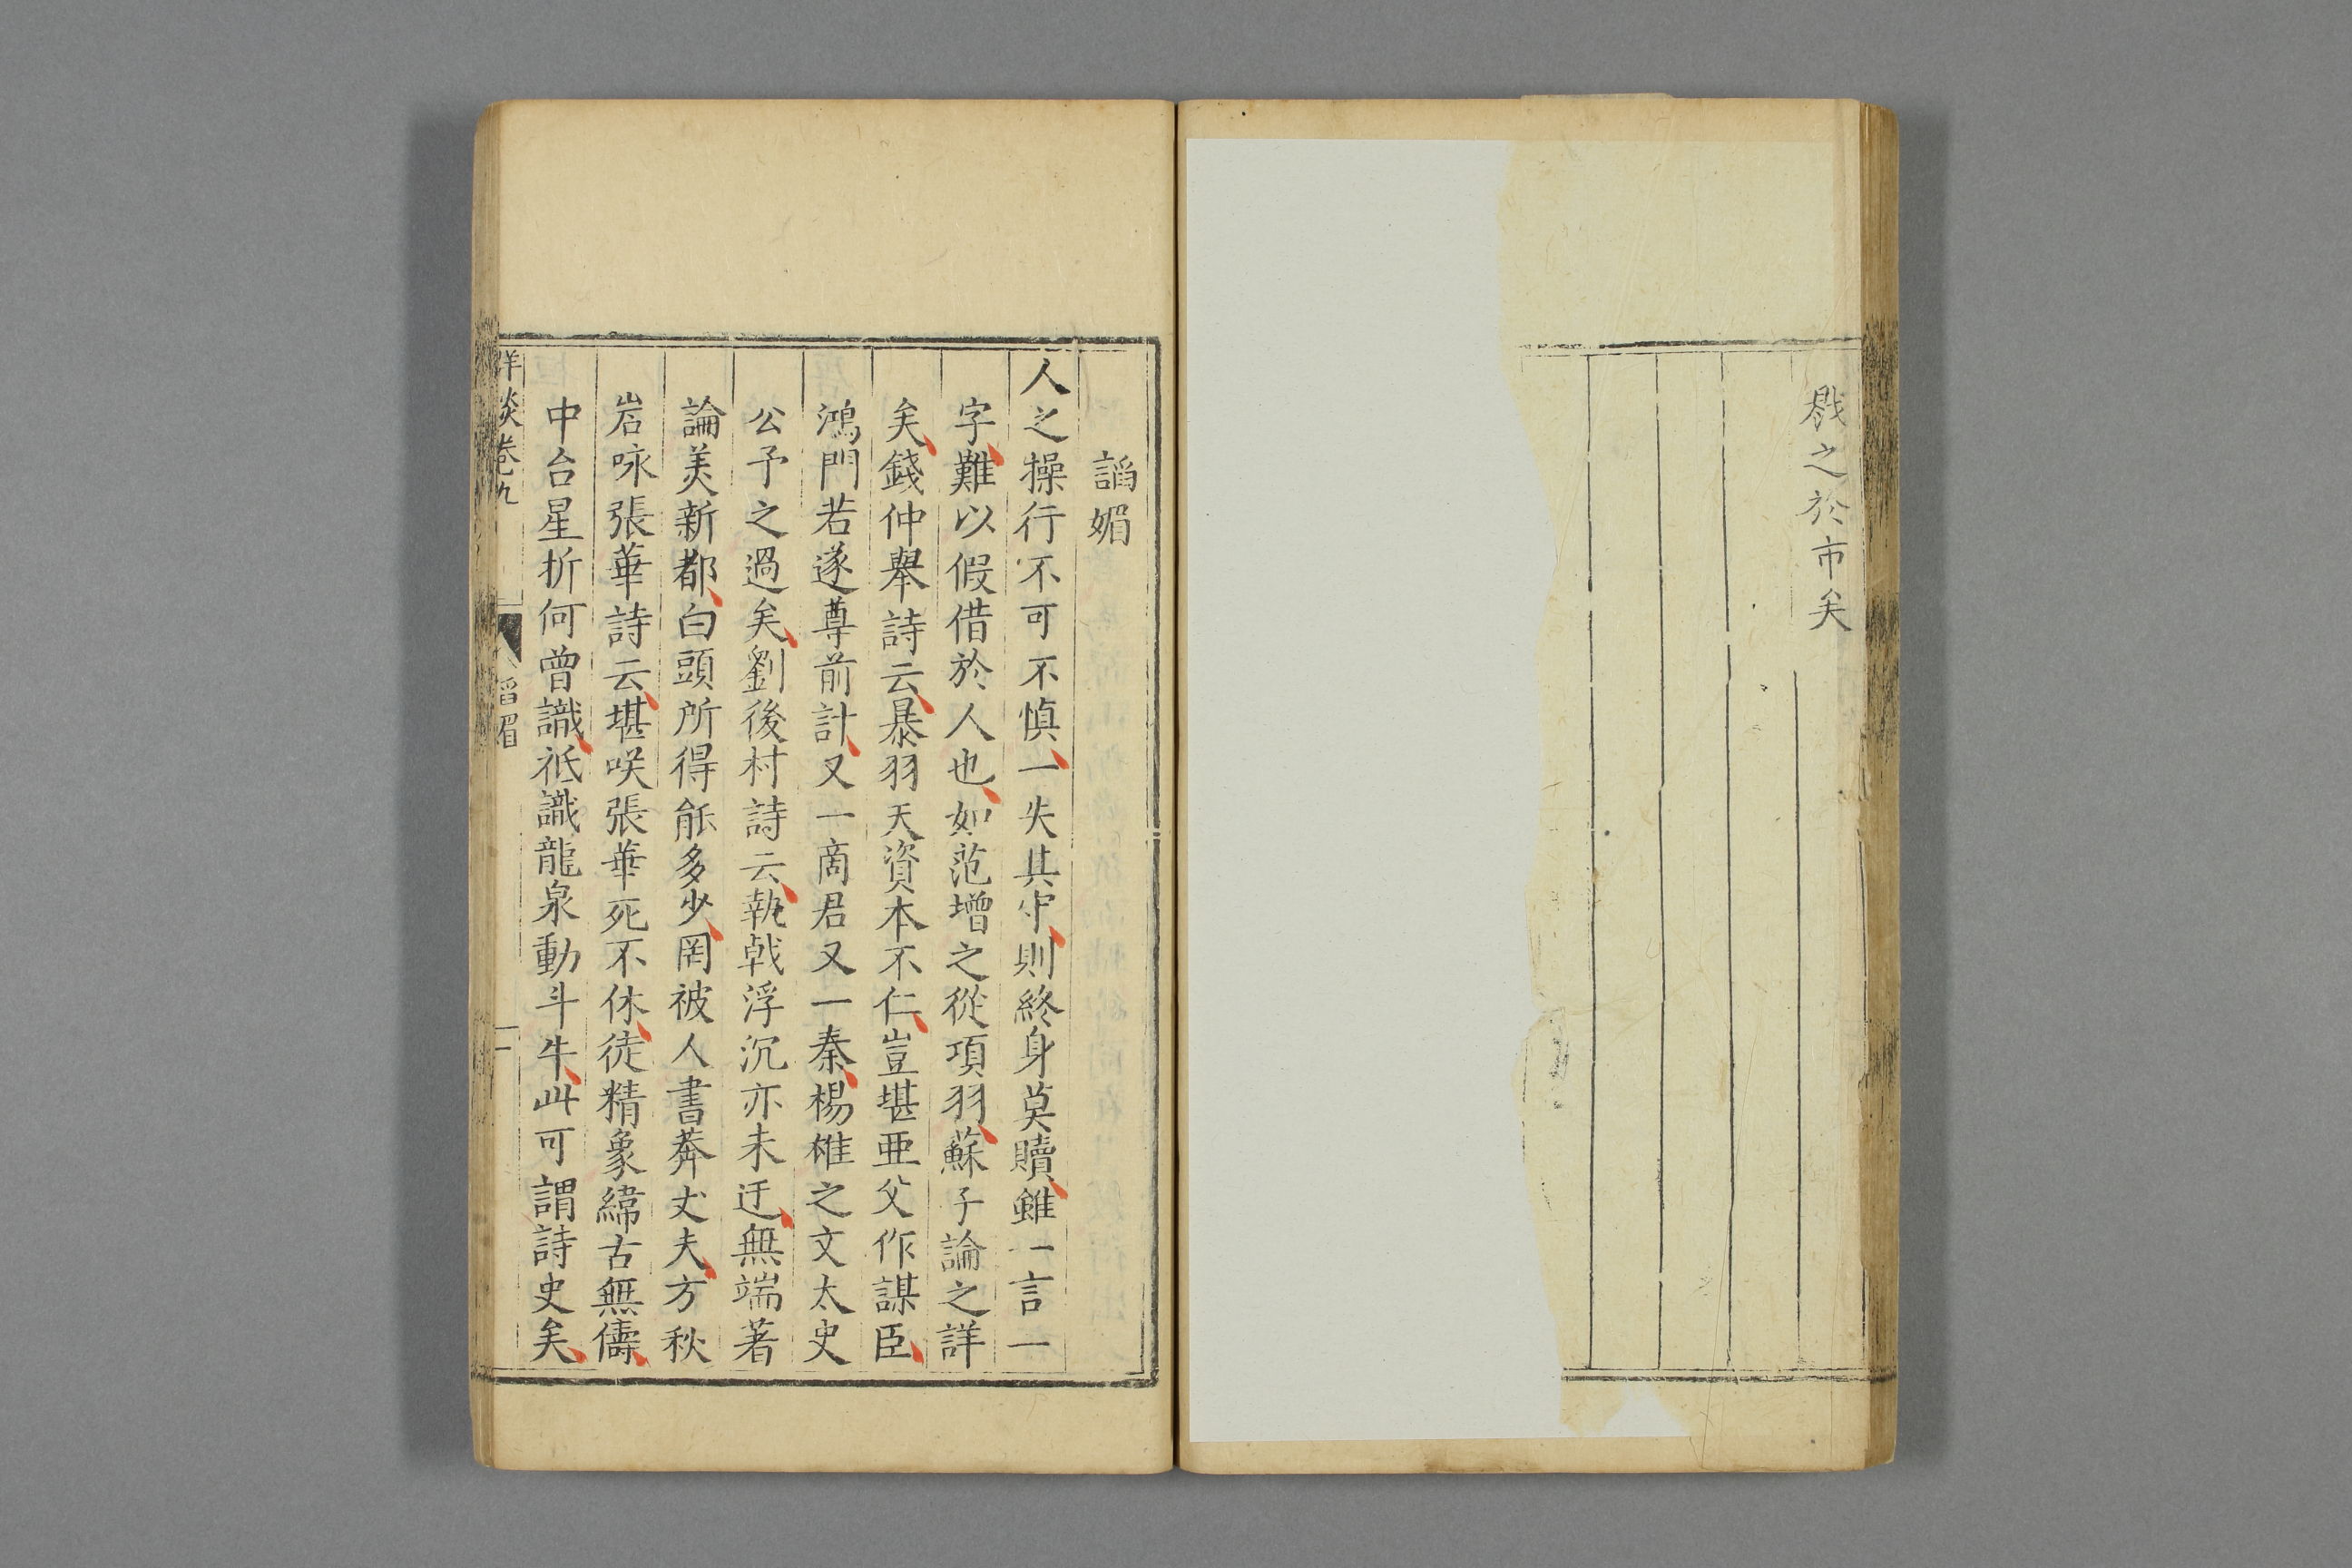 戮之於市矣
諂媚
人之操行不可不慎一失其守則終身莫贖雖一言一
字難以假借於人也如范增之從項羽蘇子論之詳
矣錢仲舉詩云暴羽天資本不仁豈堪亜父作謀臣
鴻門若遂尊前計又一商君又一秦楊雄之文太史
公予之過矣劉後村詩云執戟浮沉亦未迂無端著
論美新都白頭所得能多少罔被人書莽大夫方秋
岩咏張華詩云堪咲張華死不休徒精象緯古無儔
中台星折何曾識祇識龍泉動斗牛此可謂詩史矣
談卷九
諂媚
一